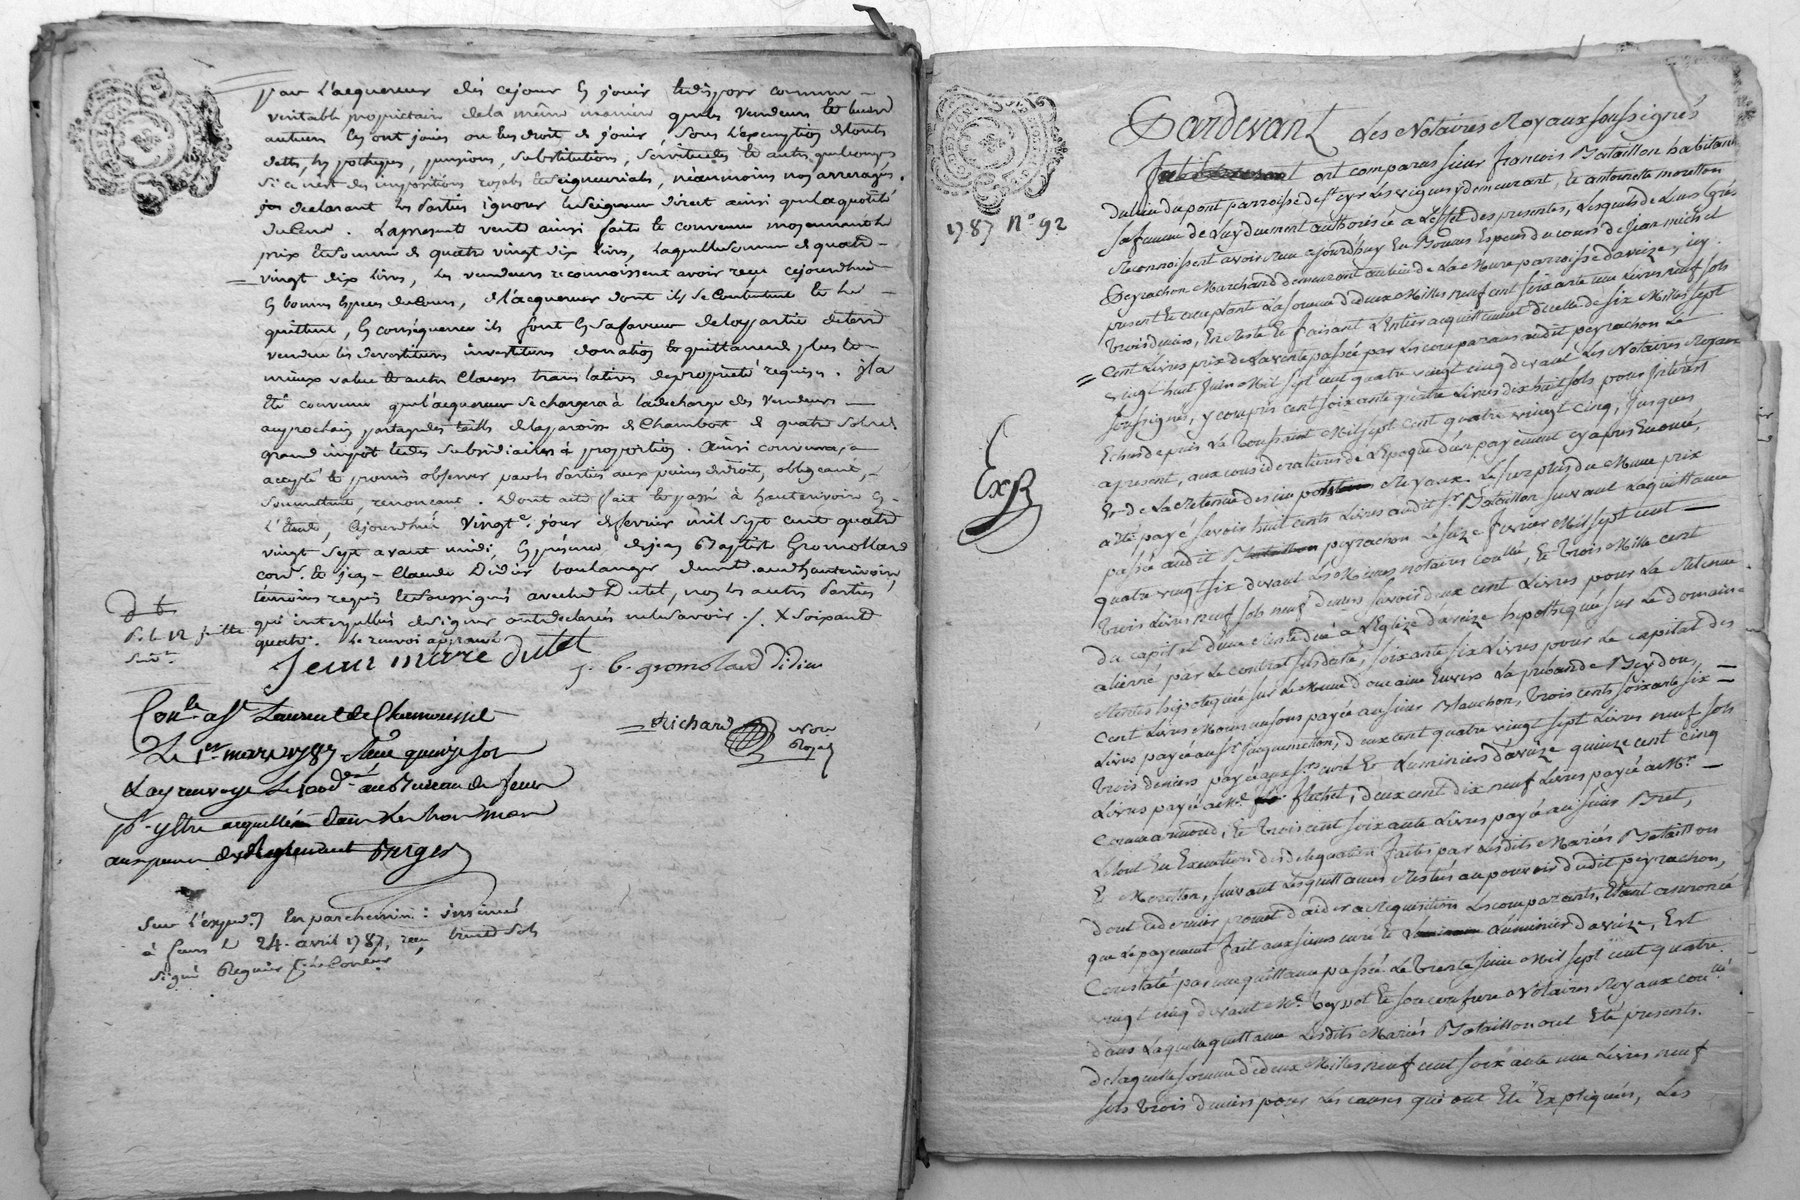 par L'acquereur dés cejour En jouir & disposer comme
veritable proprietaire de la même maniere que les Vendeurs & leurs
auteurs En ont joui ou eu droit de jouir Sous L'exemption de toute
dette, hypotheques, pensions, Substitutions, Servitudes & autres quelconques
Si ce n'est des impositions royales & Seigneuriales, néanmoins nos arrerages
declarant les Parties ignorer le Seigneur direct ainsi que la quotité
du cens. Lapresente vente ainsi faite & convenue moyennant le
prix & Somme de quatre vingt dix livres, laquelle Somme de quatre
vingt dix livres, les vendeurs reconnoissent avoir reçu cejourdhui
En bonnes Especes de Cours, de l'acquereur dont ils Se Contentent & le
quittent, En conséquence ils font En Safaveur de la partie de terre
vendue les devestitures investitures donation & quittance de plus &
mieux value & autres Clauses translatives de proprieté requises. il a
Eté convenu que l'acquereur Se chargera à la décharge des Vendeurs
au prochain partage des tailles de la paroisse de Chambost de quatre Sols de
grand impôt & des Subsidiaires à proportion. Ainsi convenu,
accepté & promis observer par les Parties aux peines de droit, obligeant,
Soumettant, renonçant. Dont acte fait & passé à hauterivoire En
L'Etude, Cejourdhui Vingt.e jour de fevrier mil Sept cent quatre
vingt Sept avant midi, En présence de jean Baptiste Gromollard
cord.r & jean-Claude Didier boulanger demt. audit hauterivoire,
temoins requis & Soussignés avec led. Dutel, non les autres Parties
qui interpellées de Signer ont declaré ne le Savoir ./. X Soixante
quatre. Le renvoi approuvé
Jean marie dutel
j. b. gromolard Didier
Richard
Nore
Royal
Con.lé à S.t Laurent de Chamousset
Le 1.er mars 1787 Reçu quinze sols
& ay renvoyé Le 100.d.é au Bureau de feurs
p.r y Etre acquitté dans Le mois
aux peines du Reglement Burger
Sur L'exped.on En parchemin : insinué
à feurs le 24. avril 1787, reçu trente Sols
Signé
1787 N° 92
Exp
Pardevant Les Notaires Royaux soussignés
ont comparus sieur françois Bataillon habitant
Du lieu du pont parroisse de S.t Cyr Les vignes y demeurant, & antoinette moretton
Sa femme de Luy duement authorisée a L'effet des presentes, Lesquels de Leurs Grés
Reconnoissent avoir Reçu cejourd'huy En Bonnes Especes du cours de Jean michel
Peyrachon Marchand demeurant au lieu de La Mure parroisse d'aveize, icy
present & acceptant La somme de deux Milles neuf cent soixante une Livres neuf sols
trois deniers, En Reste & faisant L'Entier acquittement de celle de six Milles sept
Cent Livres prix de La vente passée par Les comparans audit peyrachon Le
vingt huit Juin Mil sept cent quatre vingt cinq devant Les Notaires Royaux
soussignés, y compris cent soixante quatre Livres dix huit sols pour Interest
Echus depuis La Toussaint Mil sept cent quatre vingt cinq, Jusques
apresent, aux considerations de L'Epoque d'un payement cy apres Enoncé,
Et de La Retenue des impositions Royaux. Le surplus du Meme prix
a été payé savoir huit cents Livres audit s.r Bataillon suivant La quittance
passée audit peyrachon Le seize fevrier Mil sept cent
quatre vingt six devant Les Mêmes notaires, & trois Mille cent
trois Livres neuf sols neuf deniers savoir deux cent Livres pour La Retenue
Du capital d'une Rente due a L'Eglize d'aveize hipothequée sur Le domaine
aliené par Le contrat susdaté, soixante six Livres pour Le capital des
Rentes hipotequée sur Le Meme domaine Envers La prebande Beydon,
Cent Livres Moins un sous payée au sieur Blanchon, trois cents soixante six
Livres payée au s.r Jacquemetton, deux cent quatre vingt sept Livres neuf sols
trois deniers payée aux s.rs curé & Luminiers d'aveize quinze cent cinq
Livres payée a M.e flechet, deux cent dix neuf Livres payée a M.r
Commarmond, & trois cent soixante Livres payée au sieur Bret,
Le tout En Execution des delegations faites par Lesdits Mariés Bataillon
& Moretton, suivant Les quittances Restés au pouvoir dudit peyrachon,
dont ce dernier promet d'aider a Requisition Les comparants, Etant annoncé
que Le payement fait aux sieurs curé & Luminier d'aveize, Est
Constaté par une quittance passée Le trente Juin Mil sept cent quatre
vingt cinq devant M.e Peyzot & son confrere Notaires Royaux
dans Laquelle quittance Lesdits Mariés Bataillon ont Eté presents.
de laquelle somme de deux Milles neuf cent soixante une Livres neuf
sols trois deniers pour Les causes qui ont Eté Expliquées, Les